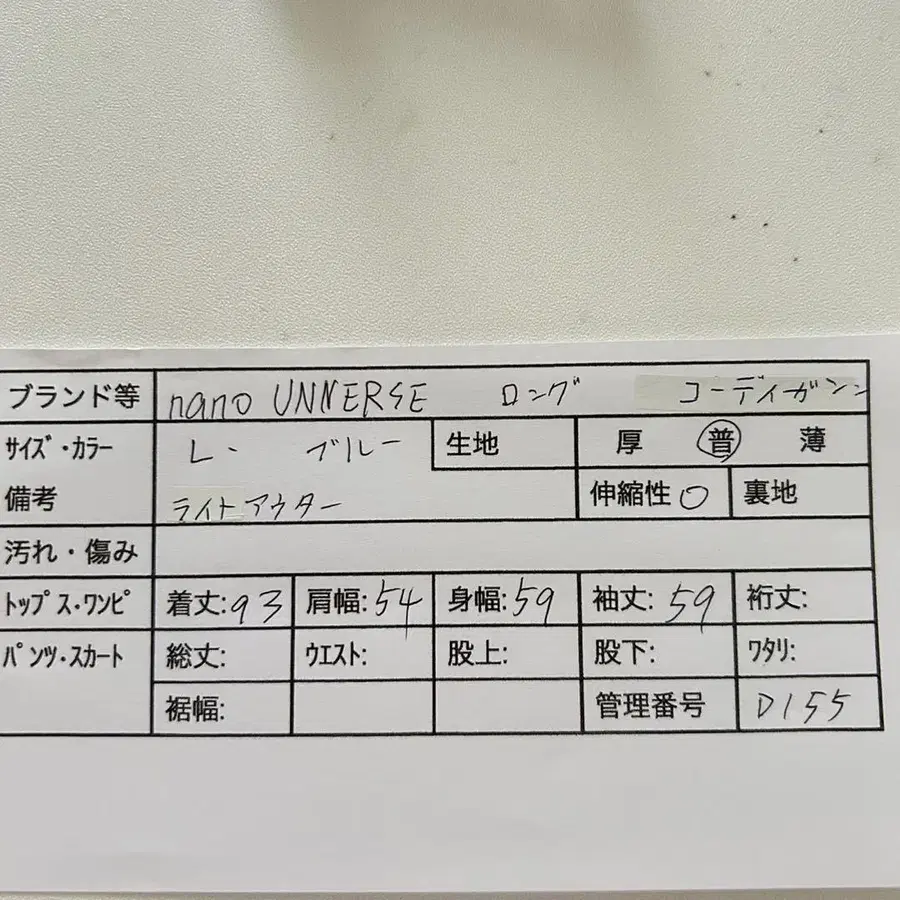 ブランド等 nano UNNERSE ロング コーディガン
サイズ・カラー L. ブルー 生地 厚 普 薄
備考 ライトアウター 伸縮性 ○ 裏地
汚れ・傷み
トップス・ワンピ 着丈:93 肩幅:54 身幅:59 袖丈:59 裄丈:
パンツ・スカート 総丈: ウエスト: 股上: 股下: ワタリ:
裾幅: 管理番号 D155